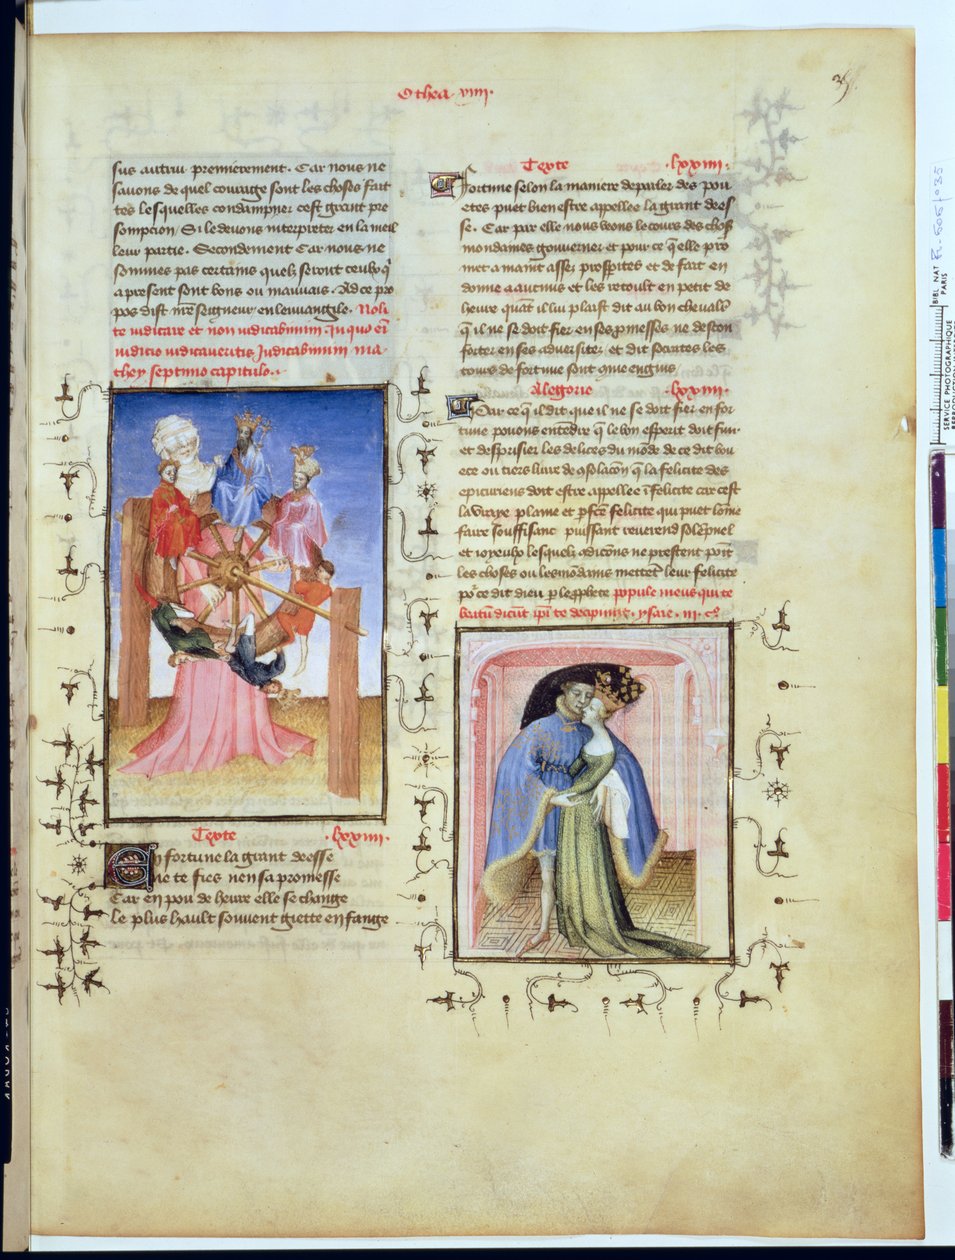 Othea. viiii.
35
sus autrui premierement. Car nous ne
sauons de quel courage sont les choses fait
tes lesquelles condampner cest grant pre
sompcion. Si les deuons interpreter en la meil
leur partie. Secondement Car nous ne
sommes pas certains quelz seront ceulx q̃
a present sont bons ou mauuais. Ad ce pro
pos dist nr̃e seigneur en leuuangile. Noli
te iudicare et non iudicabimini In quo ei
iudicio iudicaueritis Judicabimini ma
they septimo capitulo..
Texte .lxxiiii.
En fortune la grant deesse
Ne te fies nen sa promesse
Car en pou de heure elle se change
Le plus hault souuent giette en fange
Texte .lxxiiii.
Fortune selon la maniere de parler des pou
etes puet bien estre appellee la grant dees
se. Car par elle nous veons le cours des chos̃
mondaines gouuerner et pour ce q̃ elle pro
met a maint assez prosp̃ites et de fait en
donne a aucuns et les retoult en petit de
heure quãt il lui plaist dit au bon cheualr̃
q̃ il ne se doit fier en ses p̃messes ne descon
forter en ses aduersitez et dit socrates les
tours de fortune sont cõme engins
Alegorie .lxxiiii.
Par ce q̃ il dit que il ne se doit fier en for
tune pouons entẽdre q̃ le bon esperit doit fuir
et desprisier les delices du mõde de ce dit bou
ece ou tiers liure de cõsolaciõn q̃ la felicite des
epicuriens doit estre appellee ĩfelicite car cest
la vraye plaine et p̃fc̃e felicite qui puet lõme
faire souffisant puissant reuerend solẽpnel
et ioyeulx lesquelx cõdiciõns ne prestent poĩt
les choses ou les mõdains mettẽt leur felicite
po᷑ ce dit dieu p̲ le p̲phete popule meus qui te
beatũ dicũt ip̃i te decipiũt. ysaie. iii. c°.
BIBL. NAT
PARIS
SERVICE PHOTOGRAPHIQUE